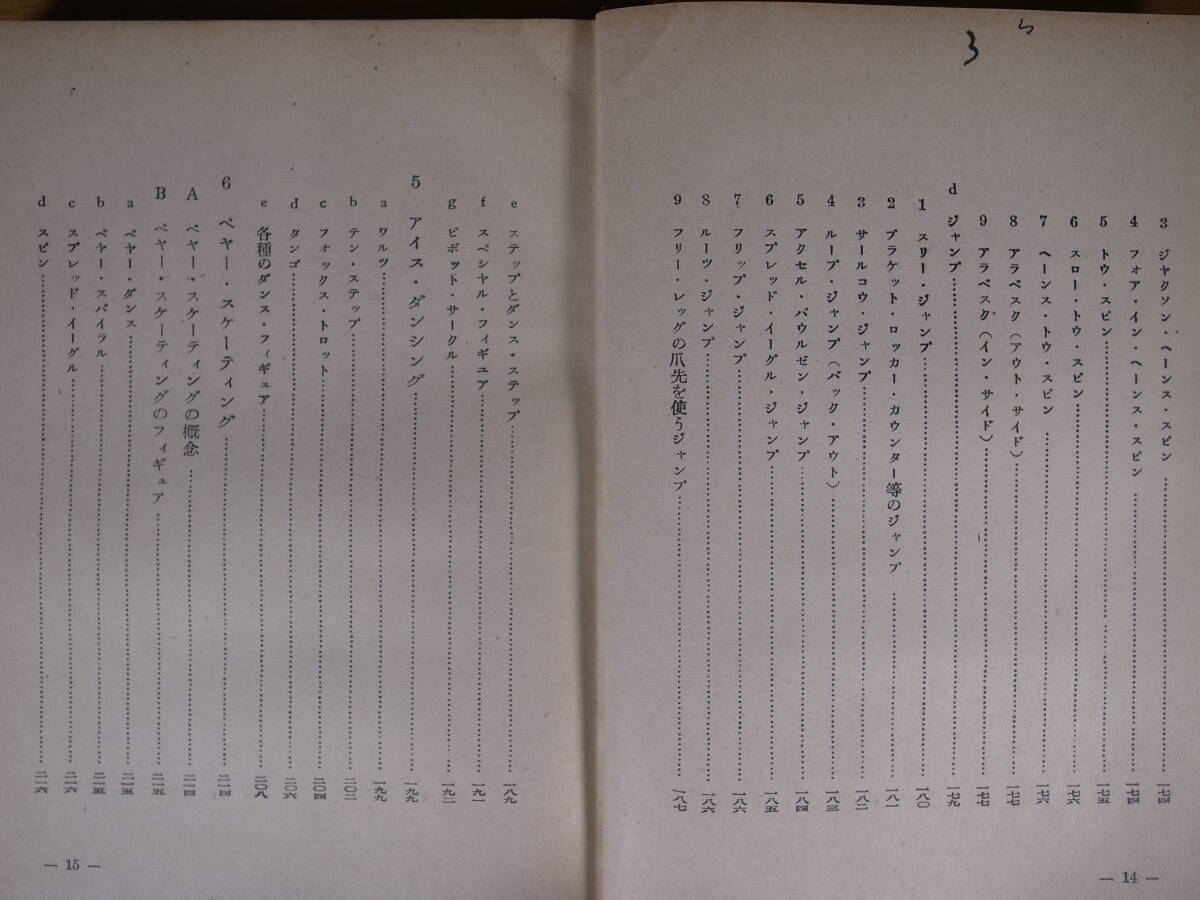 3 ジャクソン・ヘーンス・スピン……一七四
4 フォア・イン・ヘーンス・スピン……一七四
5 トウ・スピン……一七五
6 スロー・トウ・スピン……一七六
7 ヘーンス・トウ・スピン……一七六
8 アラベスク(アウト・サイド)……一七七
9 アラベスク(イン・サイド)……一七七
d ジャンプ……一七九
1 スリー・ジャンプ……一八〇
2 ブラケット・ロッカー・カウンター等のジャンプ……一八一
3 サールコウ・ジャンプ……一八二
4 ループ・ジャンプ(バック・アウト)……一八三
5 アクセル・パウルゼン・ジャンプ……一八四
6 スプレッド・イーグル・ジャンプ……一八五
7 フリップ・ジャンプ……一八六
8 ルーツ・ジャンプ……一八六
9 フリー・レッグの爪先を使うジャンプ……一八七
— 14 —
e ステップとダンス・ステップ……一八九
f スペシャル・フィギュア……一九一
g ピボット・サークル……一九二
5 アイス・ダンシング……一九九
a ワルツ……一九九
b テン・ステップ……二〇二
c フォックス・トロット……二〇四
d タンゴ……二〇六
e 各種のダンス・フィギュア……二〇八
6 ペヤー・スケーティング……二一四
A ペヤー・スケーティングの概念……二一四
B ペヤー・スケーティングのフィギュア……二一五
a ペヤー・ダンス……二一五
b ペヤー・スパイラル……二一五
c スプレッド・イーグル……二一六
d スピン……二一六
— 15 —